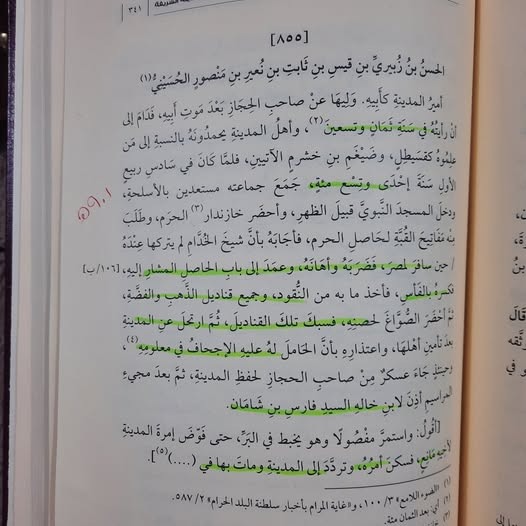 ٣٤١
[٨٥٥]
الحسنُ بنُ زُبيريِّ بنِ قيسِ بنِ ثابتِ بنِ نُعيرِ بنِ مَنْصورٍ الحُسَيْنيُّ(١)
أميرُ المدينةِ كأبيهِ. وَلِيها عنْ صاحبِ الحِجَازِ بَعْدَ مَوتِ أبيهِ، فَدَامَ إلى
أنْ رأيتُهُ في سَنَةِ ثَمَانٍ وتسعينَ(٢)، وأهلُ المدينةِ يحمدُونَهُ بالنسبةِ إلى مَن
عَلِمُوهُ كقسيطلٍ، وضَيْغَمِ بنِ خشرمٍ الآتيينِ، فلمَّا كَانَ في سَادسِ ربيعٍ
الأولِ سَنَةَ إحْدَى وتِسْعِ مئةٍ، جَمَعَ جماعته مستعدين بالأسلحةِ،
ودخلَ المسجدَ النَّبويَّ قبيلَ الظهرِ، وأحضَر خازندارَ(٣) الحرَمِ، وطَلَبَ
منه مَفَاتيحَ القُبَّةِ لحَاصِلِ الحرم، فأجَابَهُ بأنَّ شيخَ الخُدَّامِ لم يتركها عِنْدَهُ
/ حين سافرَ لمصرَ، فَضَرَبَهُ وأهَانَهُ، وعَمَدَ إلى بابِ الحاصلِ المشارِ إليهِ، [١٠٦/ب]
فكسرَهُ بالفَأسِ، فأخذ ما به من النُّقودِ، وجميعِ قناديلِ الذَّهبِ والفضَّةِ،
ثمَّ أحْضَرَ الصُّوَّاغَ لحصنِهِ، فسبكَ تلكَ القناديلَ، ثُمَّ ارتحلَ عنِ المدينةِ
بعدَ تأمينِ أهلهَا، واعتذارِهِ بأنَّ الحَاملَ لهُ عليهِ الإجحافُ في معلومِهِ(٤)
وحينئذٍ جَاءَ عسكرٌ مِنْ صاحبِ الحجازِ لحفظِ المدينةِ، ثمَّ بعدَ مجيءِ
المراسيمِ أذِنَ لابنِ خالِهِ السيدِ فارسِ بنِ شَامَان.
[أقولُ: واستمرَّ مفْصُولًا وهو يخبط في البَرِّ، حتى فَوَّضَ إمرةَ المدينةِ
لأخيهِ مَانعٍ، فسكنَ أمرُهُ، وتردَّدَ إلى المدينةِ وماتَ بها في (....)(٥)].
(١) «الضوء اللامع» ٣/ ١٠٠، و«غاية المرام بأخبار سلطنة البلد الحرام» ٢/ ٥٨٧.
(٢) أي: بعد الثمان مئة.
(٣)
٩٠١